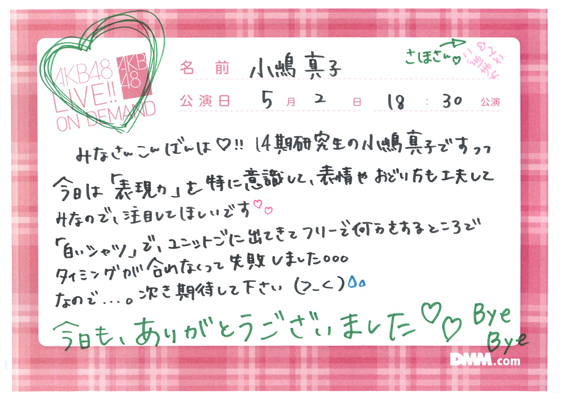 AKB48
LIVE!!
ON DEMAND
AKB
48
名前 小嶋真子
さほさん♡
公演日 5月2日 18:30公演
みなさんこんばんは♡!! 14期研究生の小嶋真子ですっっ
今日は「表現力」を特に意識して、表情やおどり方も工夫して
みなので、注目してほしいです♡♡
「白いシャツ」で、ユニットごに出てきてフリーで何かをするところで
タイミングが合わなくって失敗しました。。。
なので...。次き期待して下さい(>_<)
今日も、ありがとうございました♡♡ Bye
Bye
DMM.com